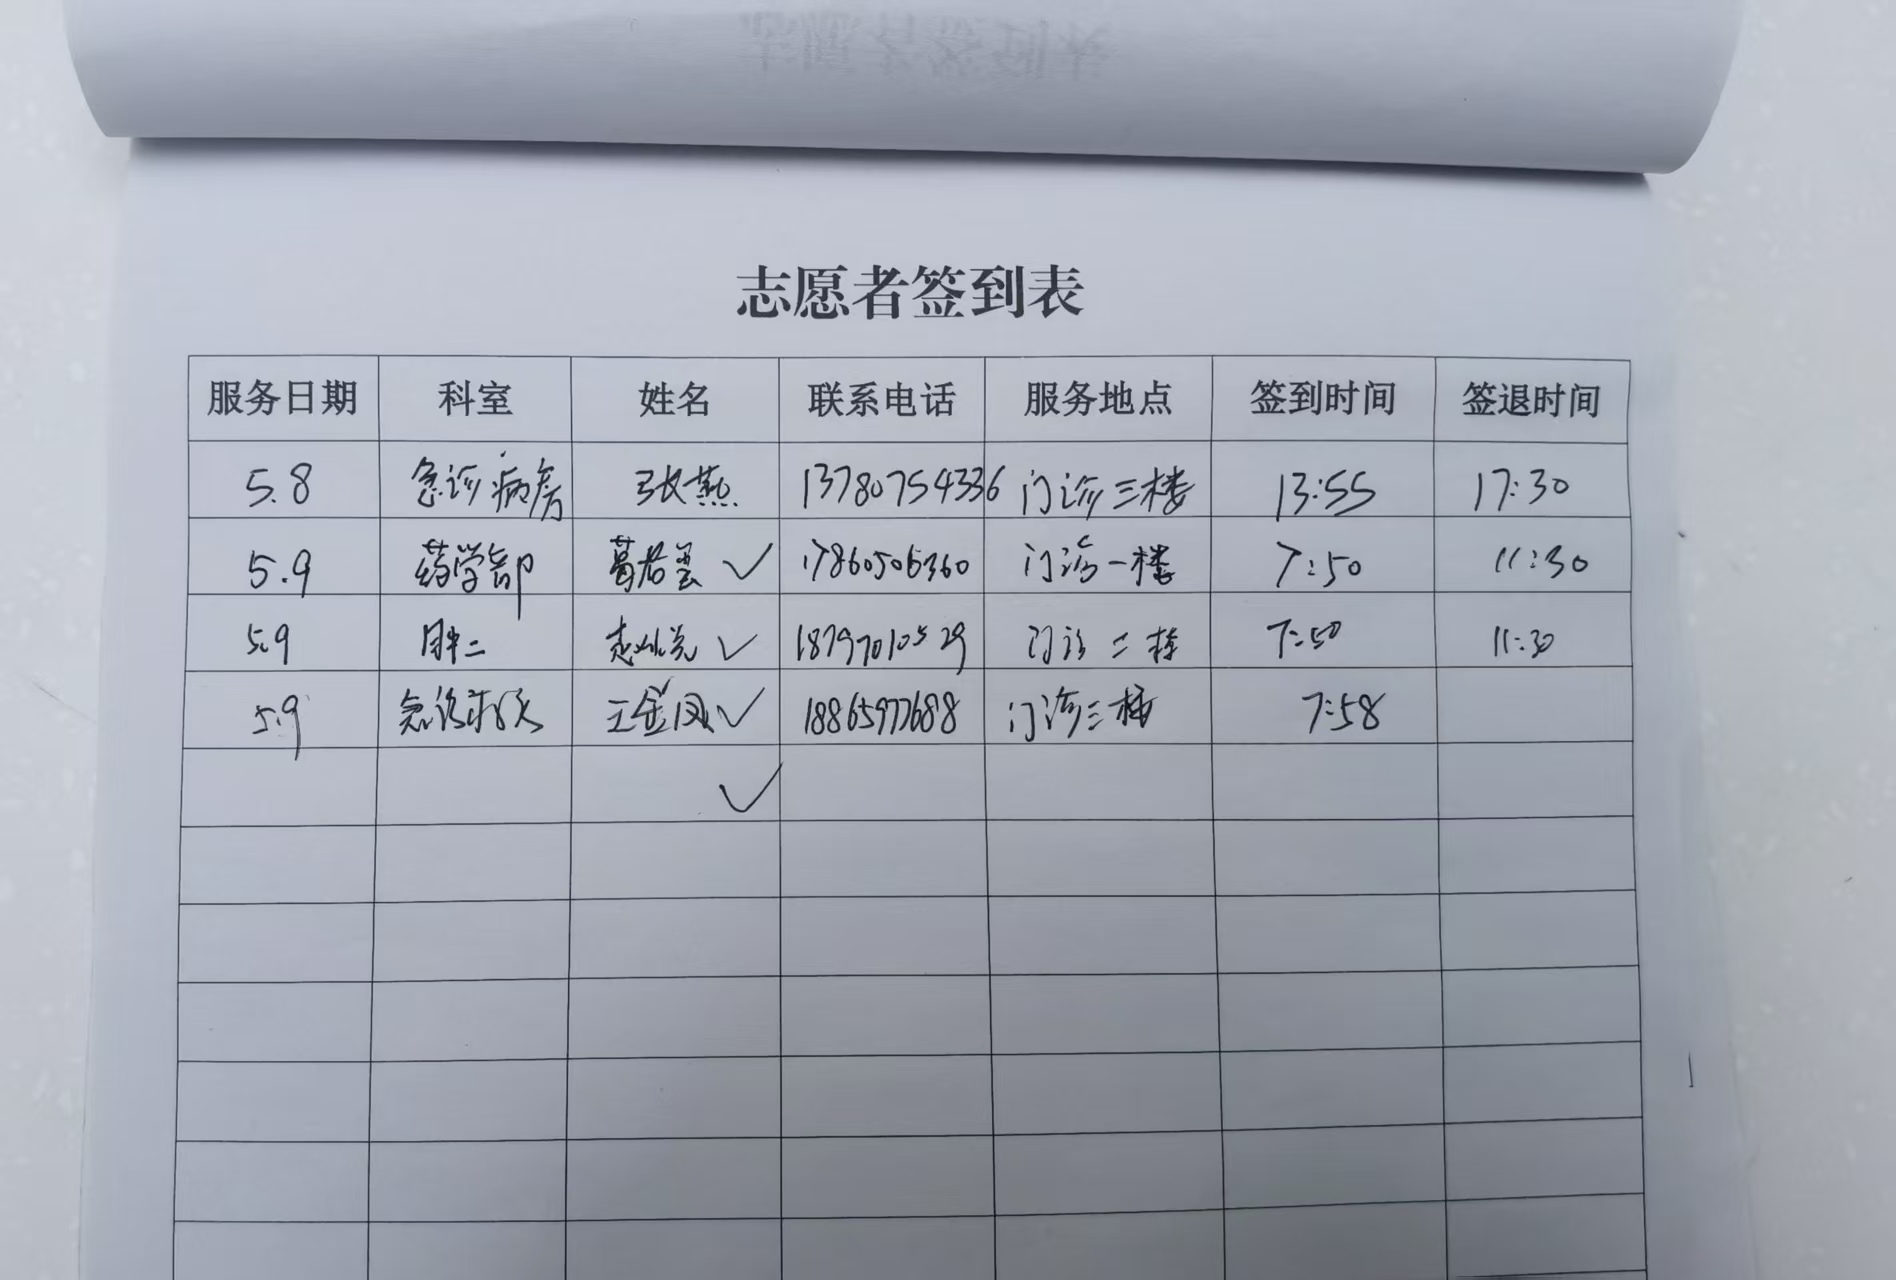 志愿者签到表
服务日期 科室 姓名 联系电话 服务地点 签到时间 签退时间
5.8 急诊病房 张燕 13780754336 门诊三楼 13:55 17:30
5.9 药学部 葛若昙 ✓ 17860506360 门诊一楼 7:50 11:30
5.9 ✓ 18797010529 门诊二楼 7:50 11:30
5.9 急诊病房 王金凤 ✓ 18865977688 门诊三楼 7:58
✓